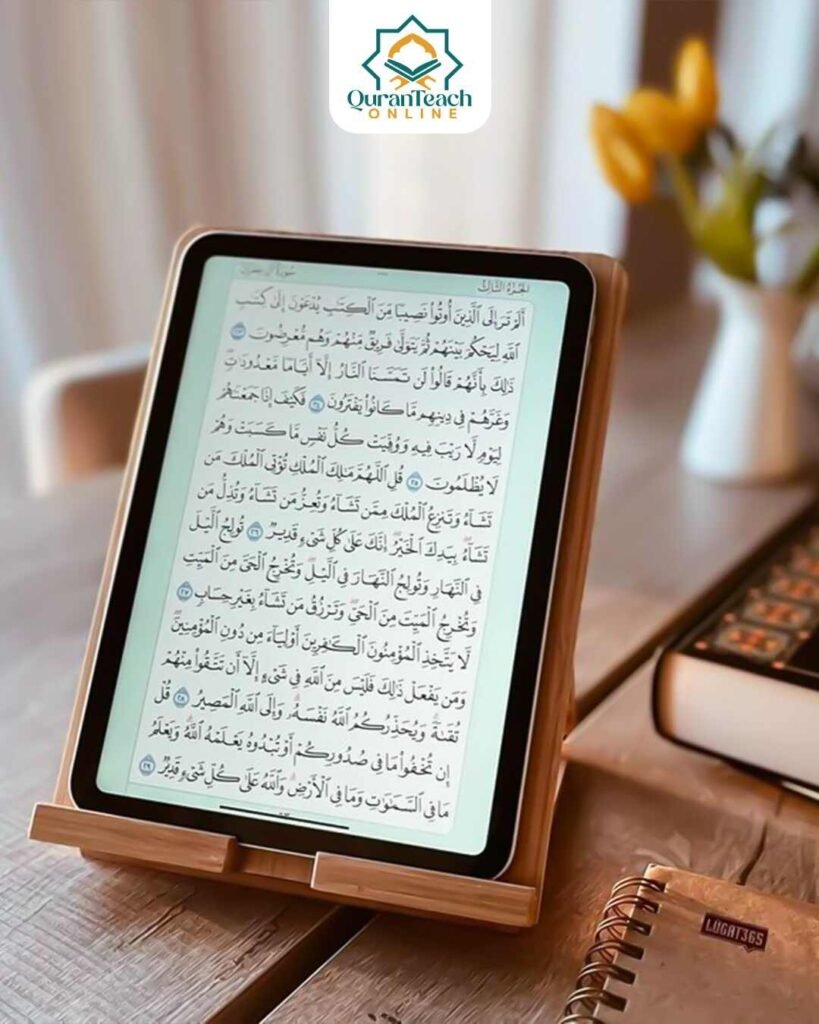 QuranTeach
ONLINE
سورة آل عمران
الجزء الثالث
أَلَمْ تَرَ إِلَى ٱلَّذِينَ أُوتُوا۟ نَصِيبًا مِّنَ ٱلْكِتَٰبِ يُدْعَوْنَ إِلَىٰ كِتَٰبِ
ٱللَّهِ لِيَحْكُمَ بَيْنَهُمْ ثُمَّ يَتَوَلَّىٰ فَرِيقٌ مِّنْهُمْ وَهُم مُّعْرِضُونَ ٢٣
ذَٰلِكَ بِأَنَّهُمْ قَالُوا۟ لَن تَمَسَّنَا ٱلنَّارُ إِلَّآ أَيَّامًا مَّعْدُودَٰتٍ ۖ
وَغَرَّهُمْ فِى دِينِهِم مَّا كَانُوا۟ يَفْتَرُونَ ٢٤ فَكَيْفَ إِذَا جَمَعْنَٰهُمْ
لِيَوْمٍ لَّا رَيْبَ فِيهِ وَوُفِّيَتْ كُلُّ نَفْسٍ مَّا كَسَبَتْ وَهُمْ
لَا يُظْلَمُونَ ٢٥ قُلِ ٱللَّهُمَّ مَٰلِكَ ٱلْمُلْكِ تُؤْتِى ٱلْمُلْكَ مَن
تَشَآءُ وَتَنزِعُ ٱلْمُلْكَ مِمَّن تَشَآءُ وَتُعِزُّ مَن تَشَآءُ وَتُذِلُّ مَن
تَشَآءُ ۖ بِيَدِكَ ٱلْخَيْرُ ۖ إِنَّكَ عَلَىٰ كُلِّ شَىْءٍ قَدِيرٌ ٢٦ تُولِجُ ٱلَّيْلَ
فِى ٱلنَّهَارِ وَتُولِجُ ٱلنَّهَارَ فِى ٱلَّيْلِ ۖ وَتُخْرِجُ ٱلْحَىَّ مِنَ ٱلْمَيِّتِ
وَتُخْرِجُ ٱلْمَيِّتَ مِنَ ٱلْحَىِّ ۖ وَتَرْزُقُ مَن تَشَآءُ بِغَيْرِ حِسَابٍ ٢٧
لَّا يَتَّخِذِ ٱلْمُؤْمِنُونَ ٱلْكَٰفِرِينَ أَوْلِيَآءَ مِن دُونِ ٱلْمُؤْمِنِينَ ۖ
وَمَن يَفْعَلْ ذَٰلِكَ فَلَيْسَ مِنَ ٱللَّهِ فِى شَىْءٍ إِلَّآ أَن تَتَّقُوا۟ مِنْهُمْ
تُقَىٰةً ۗ وَيُحَذِّرُكُمُ ٱللَّهُ نَفْسَهُۥ ۗ وَإِلَى ٱللَّهِ ٱلْمَصِيرُ ٢٨ قُلْ
إِن تُخْفُوا۟ مَا فِى صُدُورِكُمْ أَوْ تُبْدُوهُ يَعْلَمْهُ ٱللَّهُ ۗ وَيَعْلَمُ
مَا فِى ٱلسَّمَٰوَٰتِ وَمَا فِى ٱلْأَرْضِ ۗ وَٱللَّهُ عَلَىٰ كُلِّ شَىْءٍ قَدِيرٌ ٢٩
LUGAT365